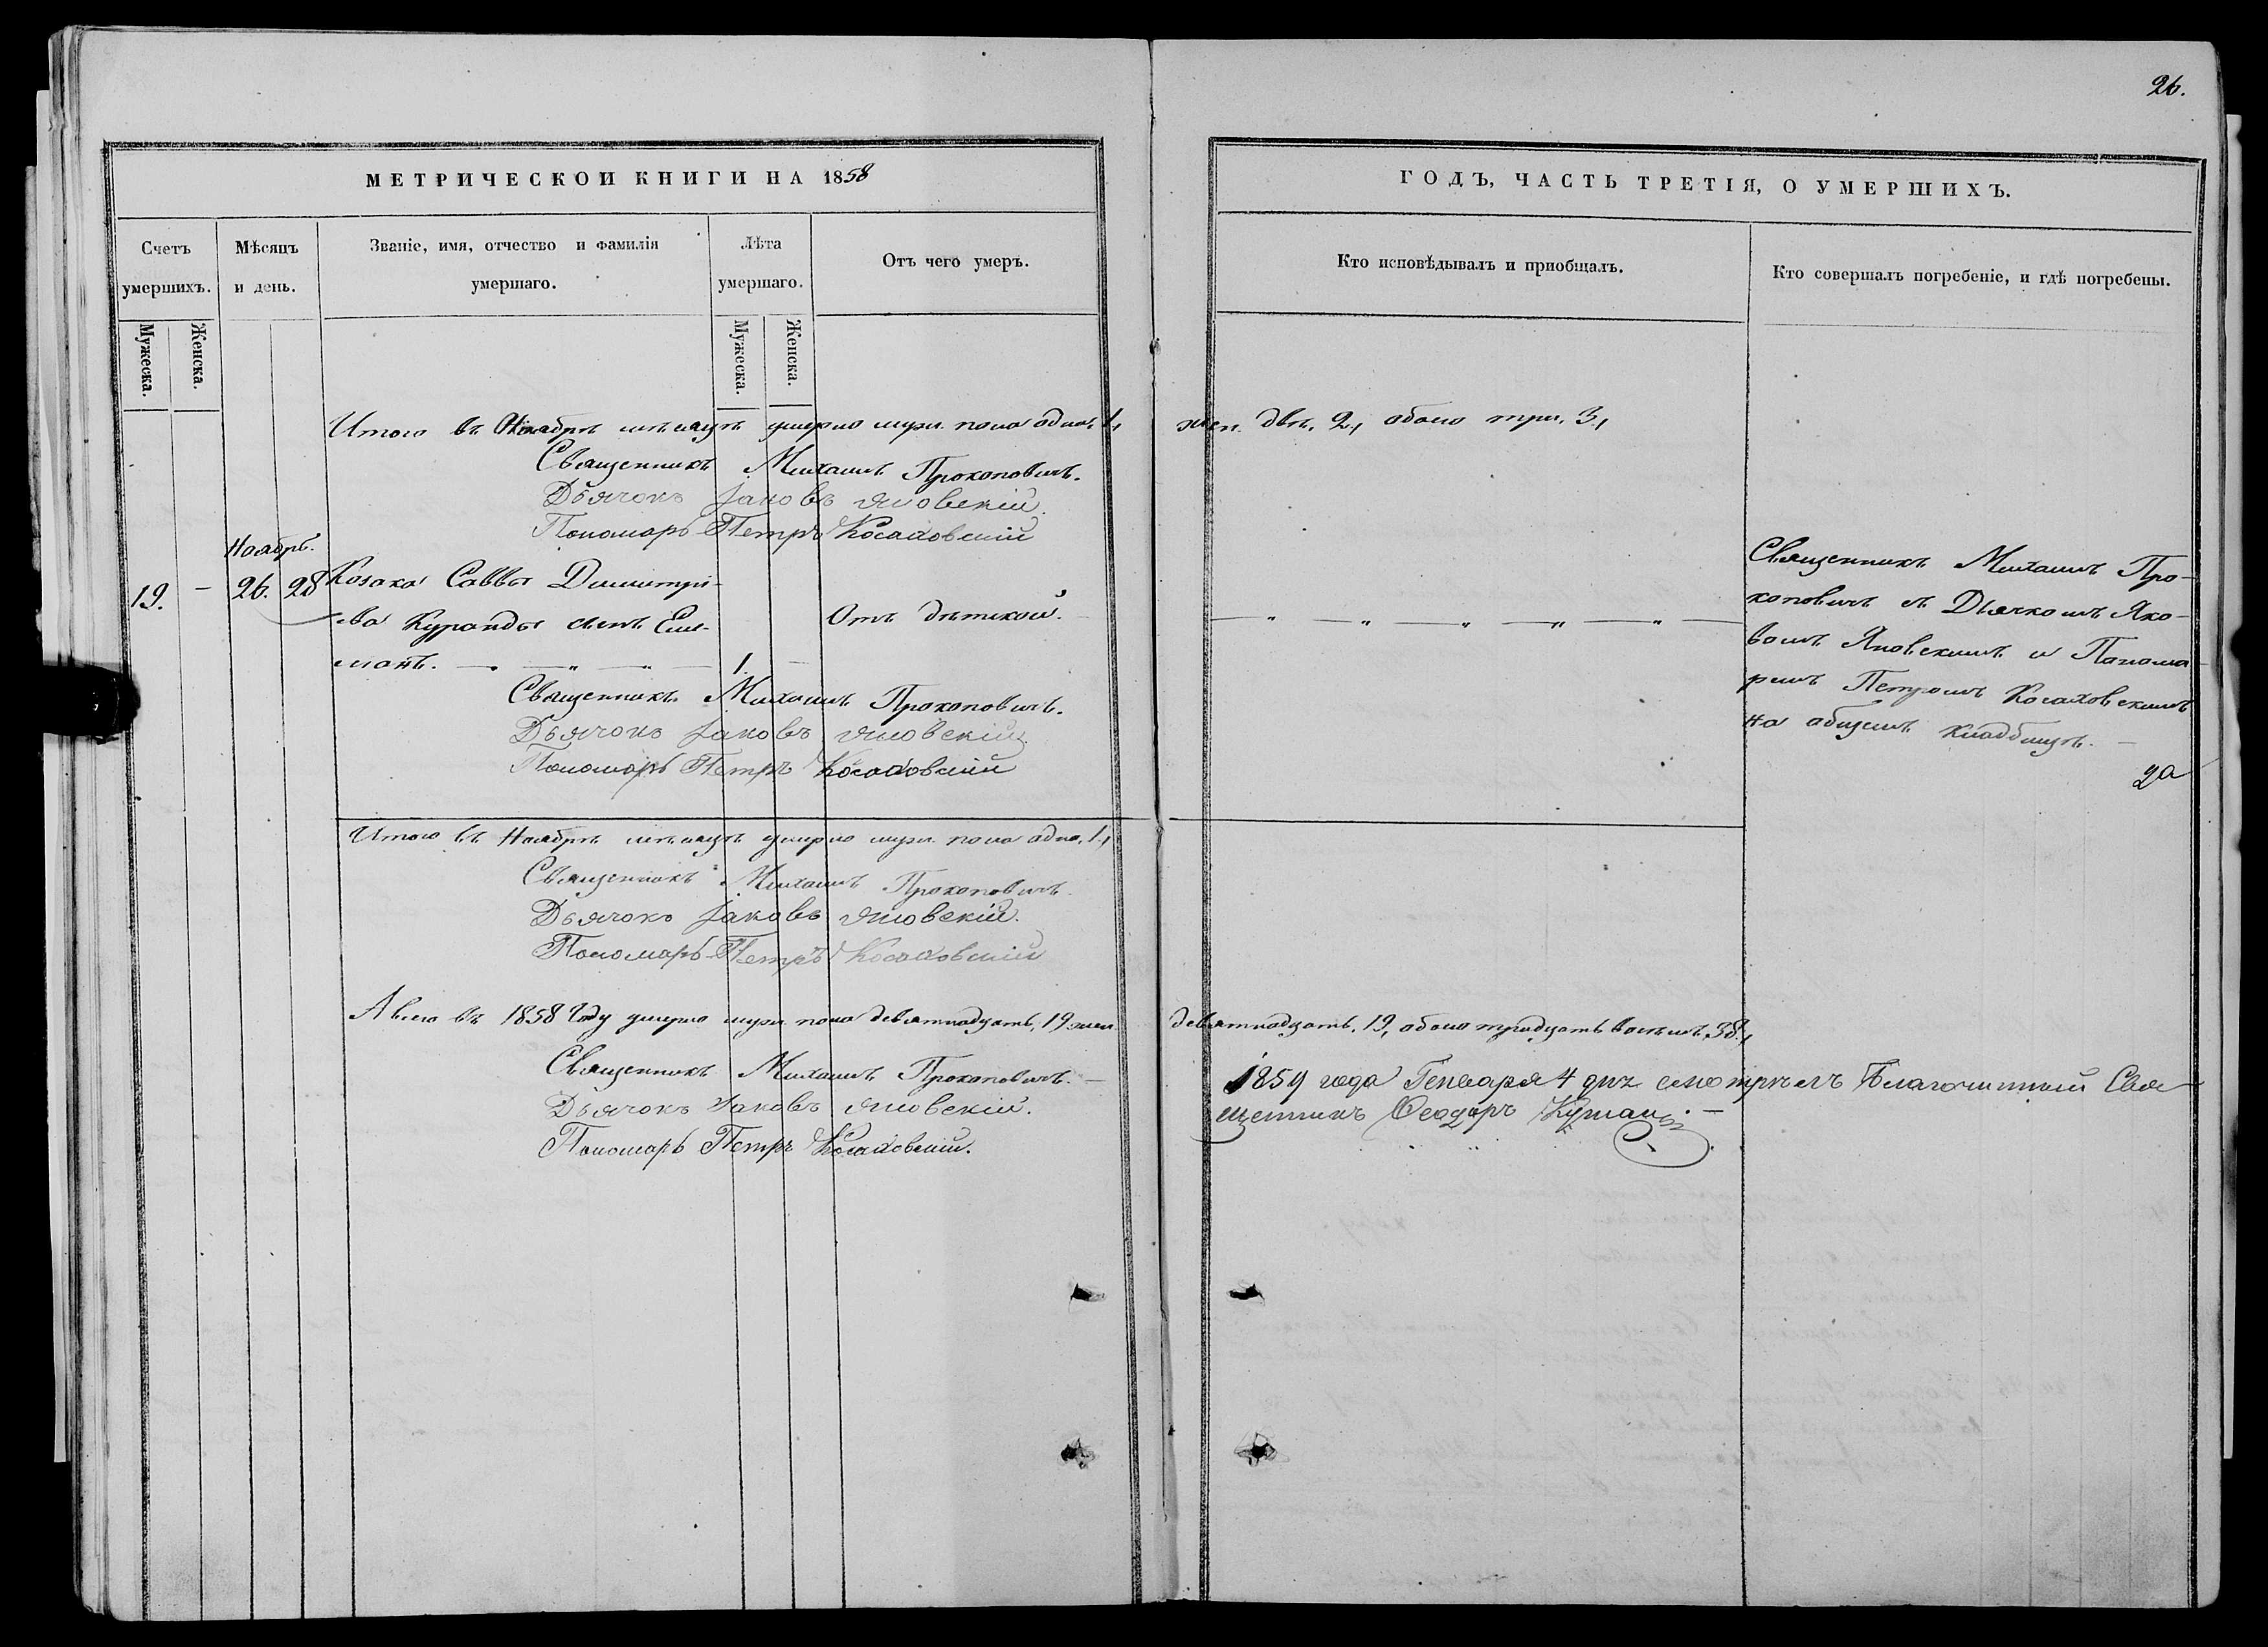 26.
МЕТРИЧЕСКОЙ КНИГИ НА 1858
ГОДЪ, ЧАСТЬ ТРЕТІЯ, О УМЕРШИХЪ.
Счетъ умершихъ.
Мужеска.
Женска.
Мѣсяцъ и день.
Званіе, имя, отчество и фамилія умершаго.
Лѣта умершаго.
Мужеска.
Женска.
Отъ чего умеръ.
Кто исповѣдывалъ и пріобщалъ.
Кто совершалъ погребеніе, и гдѣ погребены.
Итого въ мѣсяцѣ умерло муж. пола одна, 1, жен. двѣ, 2, обоего три, 3,
Священникъ Михаилъ Прокоповичъ.
Дьячокъ Іаковъ Яновскій.
Пономарь Петръ Косаховскій
Ноябрь.
19. — 26. 28
Козака Саввы Димитрі-
ева Куранды сынъ Еми-
ліанъ. — 1. —
Отъ дѣтской.
Священникъ Михаилъ Про-
коповичъ съ Дьячкомъ Яко-
вомъ Яновскимъ и Понома-
ремъ Петромъ Косаховскимъ
на общемъ кладбищѣ. —
Священникъ Михаилъ Прокоповичъ.
Дьячокъ Іаковъ Яновскій.
Пономарь Петръ Косаховскій
Итого въ Ноябрѣ мѣсяцѣ умерло муж. пола одна, 1,
Священникъ Михаилъ Прокоповичъ.
Дьячокъ Іаковъ Яновскій.
Пономарь Петръ Косаховскій
А всего въ 1858 году умерло муж. пола девятнадцать, 19, жен. девятнадцать, 19, обоего тридцать восемь, 38,
Священникъ Михаилъ Прокоповичъ. —
Дьячокъ Іаковъ Яновскій.
Пономарь Петръ Косаховскій.
1859 года Генваря 4 дня смотрѣлъ Благочинный Свя-
щенникъ Ѳеодоръ